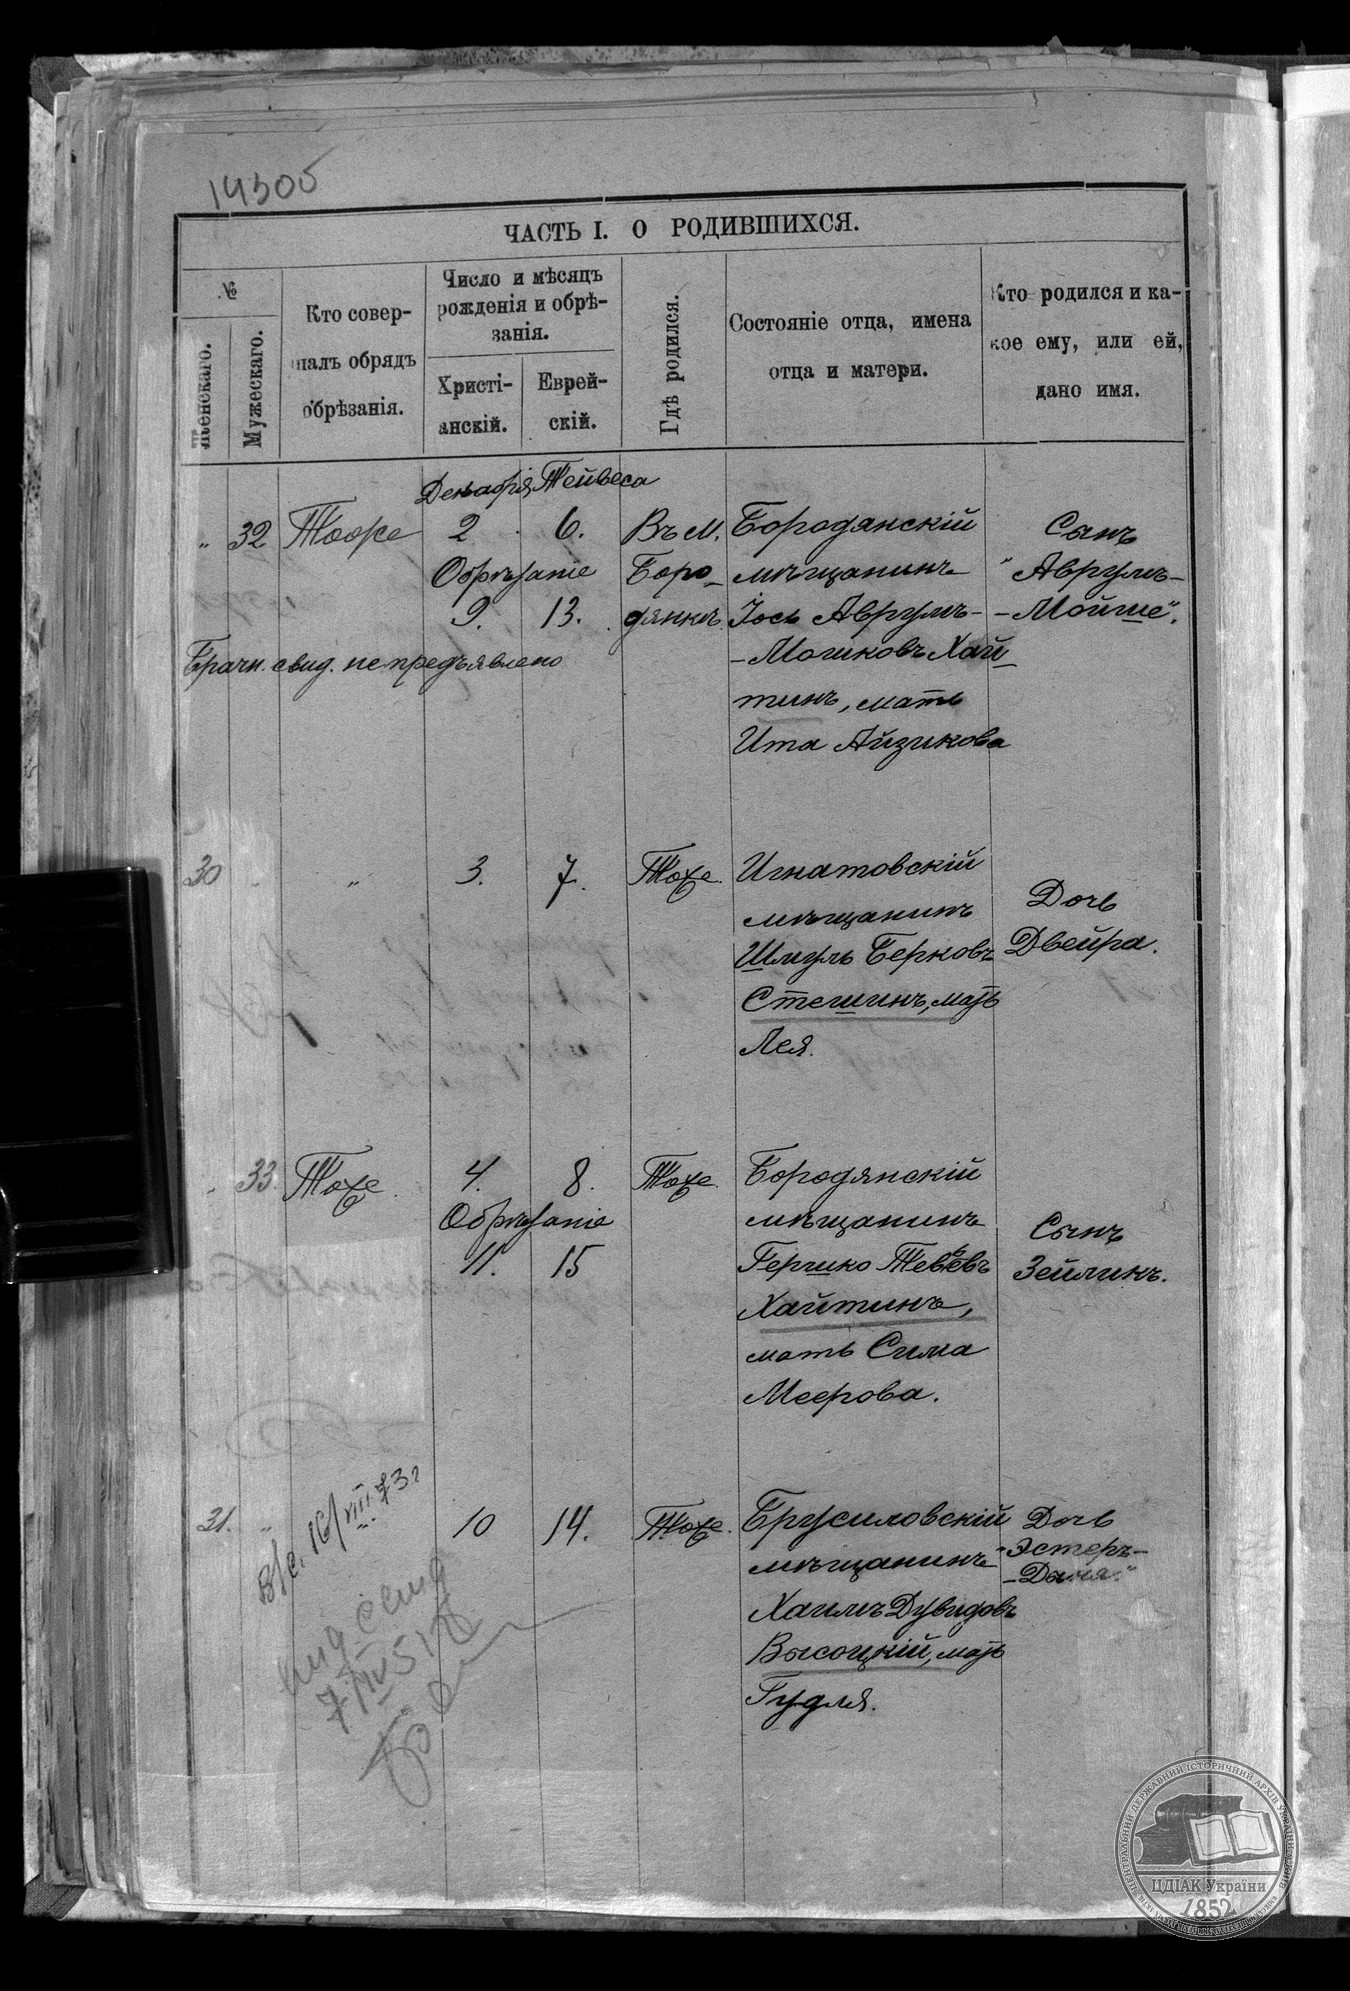 14305
ЧАСТЬ I. О РОДИВШИХСЯ.
№
Женскаго.
Мужескаго.
Кто совер-
шалъ обрядъ
обрѣзанія.
Число и мѣсяцъ
рожденія и обрѣ-
занія.
Христі-
анскій.
Еврей-
скій.
Гдѣ родился.
Состояніе отца, имена
отца и матери.
Кто родился и ка-
кое ему, или ей,
дано имя.
Декабрія Тейвеса
" 32 Тоже 2 6. Въ М. Бородянскій Сынъ
Обрѣзаніе Боро- мѣщанинъ "Аврумъ-
9. 13. дянкѣ. Іось Аврумъ- -Мойше".
Брачн. свид. не предъявлено -Мошковъ Хай-
тинъ, мать
Ита Айзикова
30 " " 3. 7. Тоже. Игнатовскій
мѣщанинъ Дочь
Шмуль Берковъ Двейра.
Стешинъ, мать
Лея.
" 33. Тоже. 4. 8. Тоже. Бородянскій
Обрѣзаніе мѣщанинъ Сынъ
11. 15 Гершко Тевьевъ Зейликъ.
Хайтинъ,
мать Сима
Меерова.
31. " 10 14. Тоже. Брусиловскій Дочь
мѣщанинъ "Эстеръ-
-Дыня."
Хаимъ Дувидовъ
Высоцкій, мать
Гудля.
в/с. 16/VIII 73г
свид
7/IV 51
ЦЕНТРАЛЬНИЙ ДЕРЖАВНИЙ ІСТОРИЧНИЙ АРХІВ УКРАЇНИ
ЦДІАК України
1852